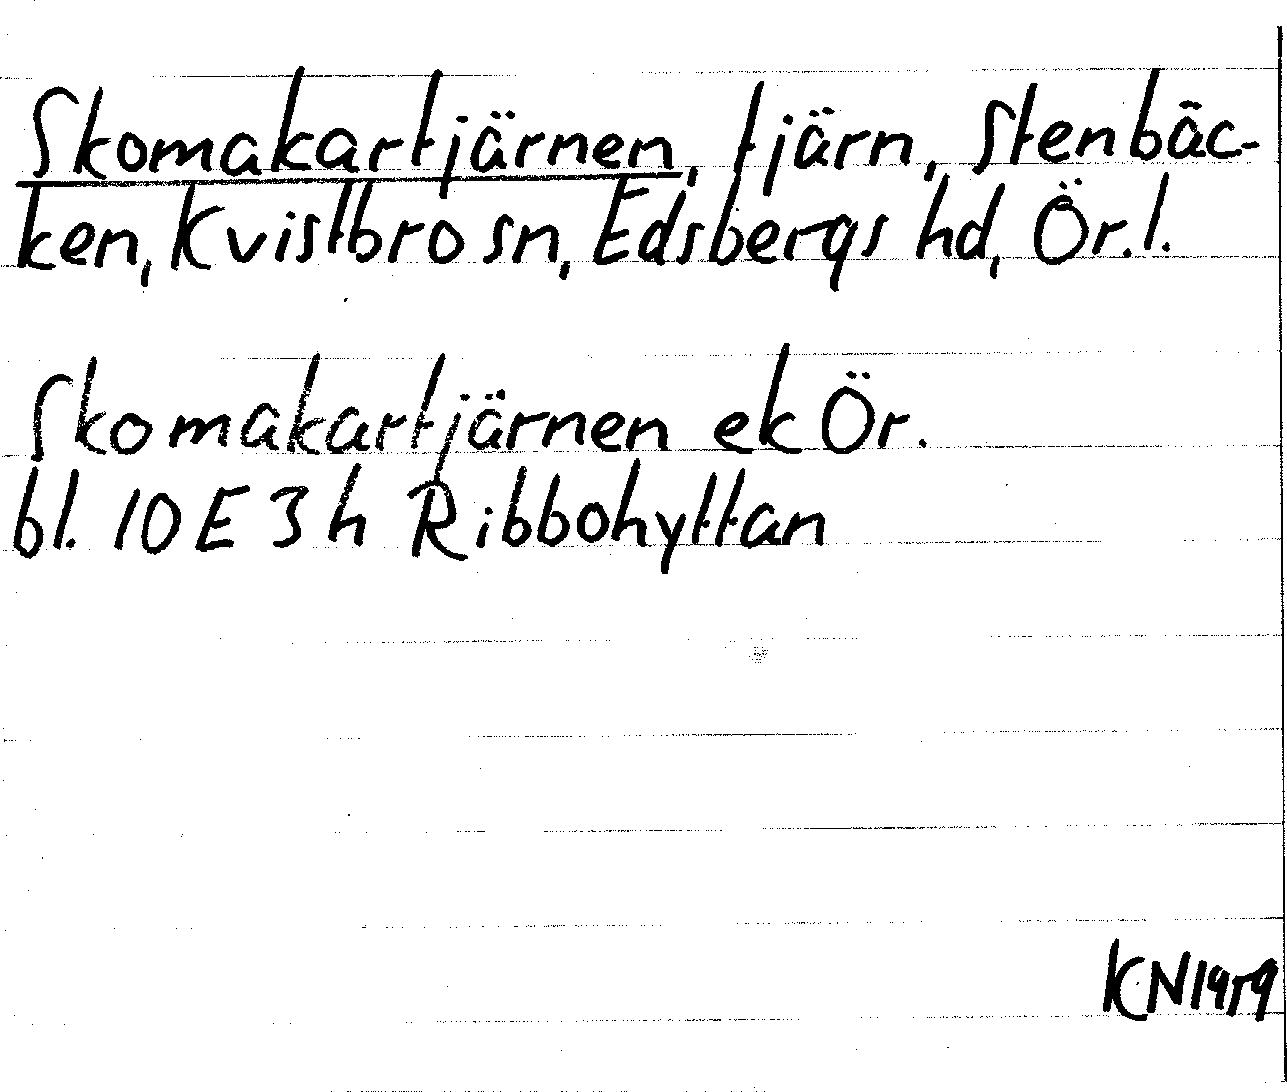 Skomakartjärnen, tjärn, Stenbäc-
ken, Kvistbro sn, Edsbergs hd, Ör.l.
Skomakartjärnen ek Ör.
bl. 10E 3h Ribbohyttan
KN 1959